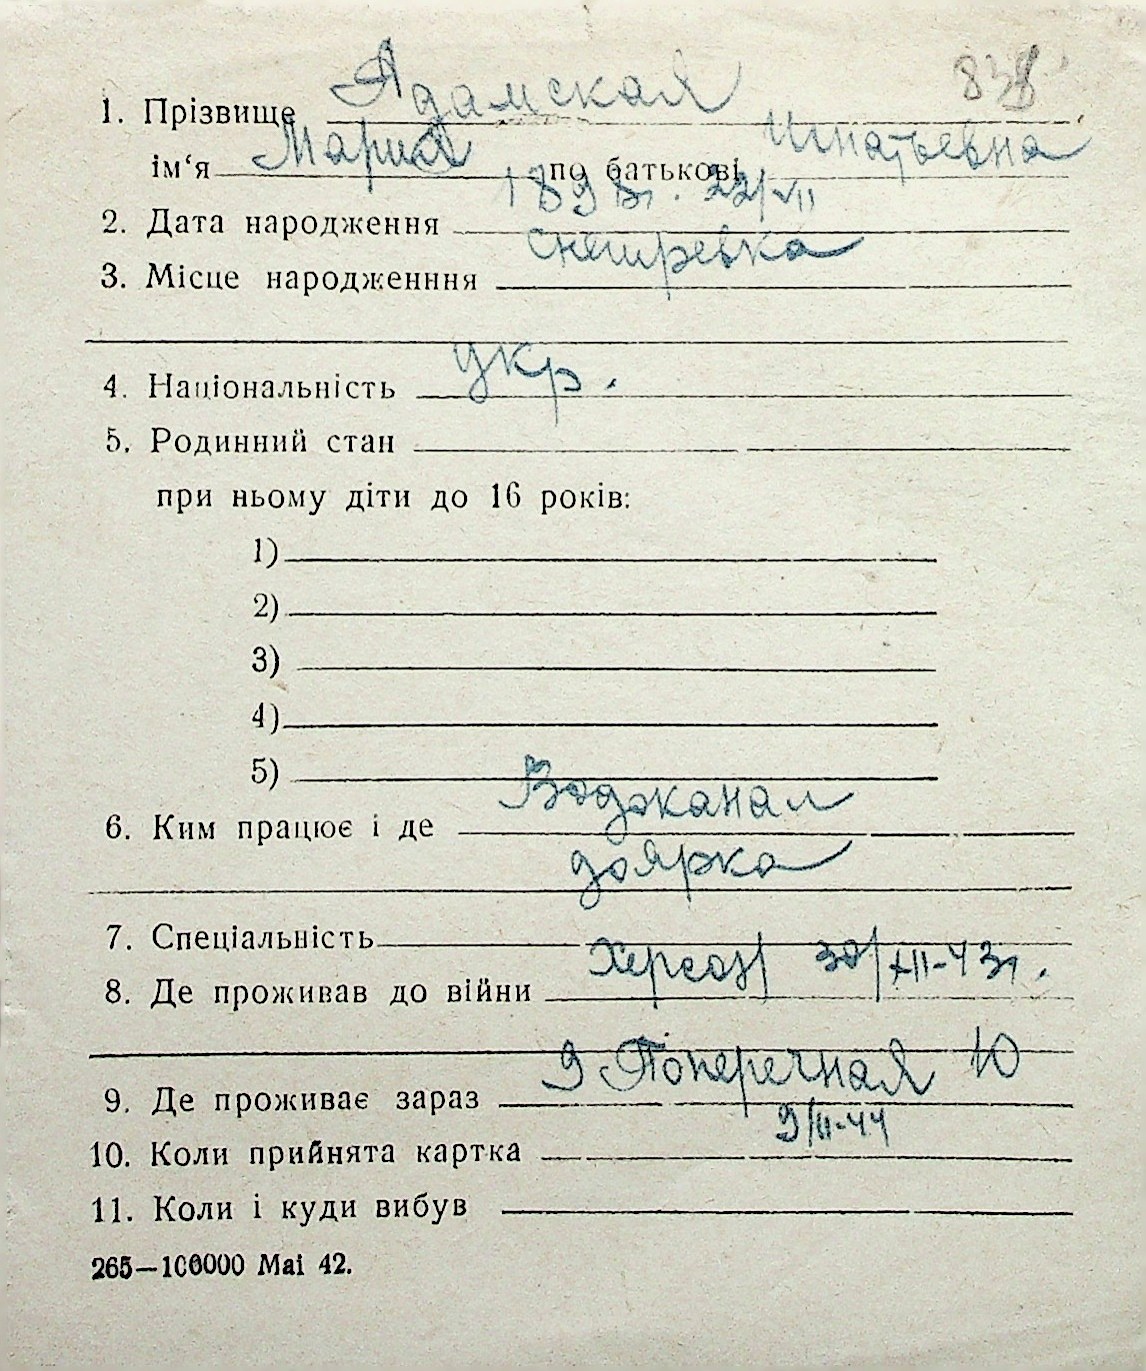 838
1. Прізвище Адамская
ім‘я Мария по батькові Игнатьевна
2. Дата народження 1893г. 22/VII
3. Місце народженння Снегиревка
4. Національність укр.
5. Родинний стан
при ньому діти до 16 років:
1)
2)
3)
4)
5)
6. Ким працює і де Водоканал
доярка
7. Спеціальність
8. Де проживав до війни Херсон 30/XII-43г.
9. Де проживає зараз 9 Поперечная 10
10. Коли прийнята картка 9/II-44
11. Коли і куди вибув
265—100000 Mai 42.